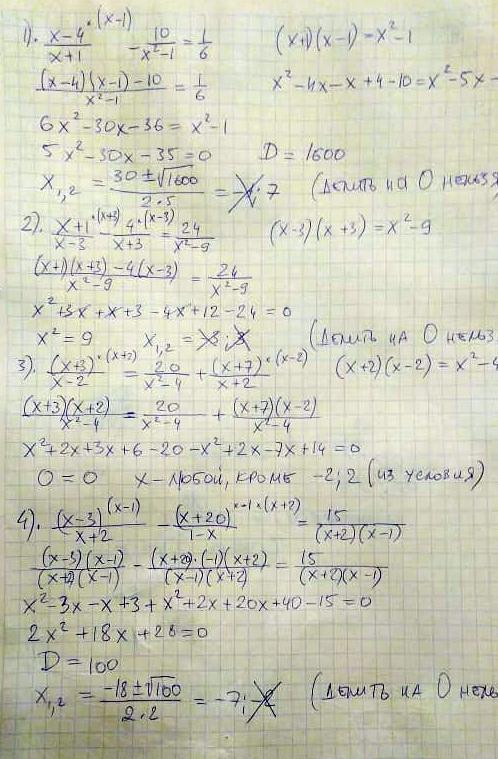 1). (x-4)/(x+1) ·(x-1) - 10/(x²-1) = 1/6 (x+1)(x-1) = x²-1
((x-4)(x-1)-10)/(x²-1) = 1/6 x²-4x-x+4-10 = x²-5x-
6x²-30x-36 = x²-1
5x²-30x-35=0 D = 1600
x₁,₂ = (30±√1600)/(2·5) = -1; 7 (делить на 0 нельзя
2). (x+1)/(x-3) ·(x+3) - 4/(x+3) ·(x-3) = 24/(x²-9) (x-3)(x+3) = x²-9
((x+1)(x+3)-4(x-3))/(x²-9) = 24/(x²-9)
x²+3x+x+3-4x+12-24=0
x²=9 x₁,₂ = -3; 3 (делить на 0 нельз
3). (x+3)/(x-2) ·(x+2) = 20/(x²-4) + (x+7)/(x+2) ·(x-2) (x+2)(x-2) = x²-4
(x+3)(x+2)/(x²-4) = 20/(x²-4) + (x+7)(x-2)/(x²-4)
x²+2x+3x+6-20-x²+2x-7x+14=0
0=0 x-любой, кроме -2; 2 (из условия)
4). (x-3)/(x+2) (x-1) - (x+20)/(1-x) ·-1·(x+2) = 15/((x+2)(x-1))
(x-3)(x-1)/((x+2)(x-1)) - (x+20)·(-1)(x+2)/((x-1)(x+2)) = 15/((x+2)(x-1))
x²-3x-x+3+x²+2x+20x+40-15=0
2x²+18x+28=0
D=100
x₁,₂ = (-18±√100)/(2·2) = -7; -2 (делить на 0 нель